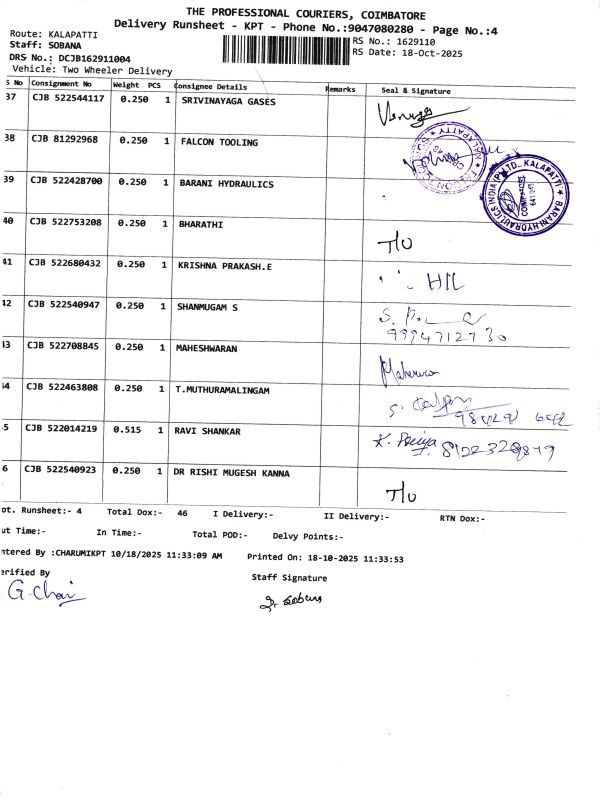 THE PROFESSIONAL COURIERS, COIMBATORE
Delivery Runsheet - KPT - Phone No.:9047080280 - Page No.:4
Route: KALAPATTI
Staff: SOBANA
DRS No.: DCJB162911004
Vehicle: Two Wheeler Delivery
RS No.: 1629110
RS Date: 18-Oct-2025
S No Consignment No Weight PCS Consignee Details Remarks Seal & Signature
37 CJB 522544117 0.250 1 SRIVINAYAGA GASES
38 CJB 81292968 0.250 1 FALCON TOOLING
39 CJB 522428700 0.250 1 BARANI HYDRAULICS
BARANI HYDRAULICS INDIA (P) LTD. KALAPATTI
40 CJB 522753208 0.250 1 BHARATHI T/U
41 CJB 522680432 0.250 1 KRISHNA PRAKASH.E
42 CJB 522540947 0.250 1 SHANMUGAM S
9994712730
43 CJB 522708845 0.250 1 MAHESHWARAN
44 CJB 522463808 0.250 1 T.MUTHURAMALINGAM
45 CJB 522014219 0.515 1 RAVI SHANKAR
46 CJB 522540923 0.250 1 DR RISHI MUGESH KANNA T/U
ot. Runsheet:- 4 Total Dox:- 46 I Delivery:- II Delivery:- RTN Dox:-
ut Time:- In Time:- Total POD:- Delvy Points:-
ntered By :CHARUMIKPT 10/18/2025 11:33:09 AM Printed On: 18-10-2025 11:33:53
erified By Staff Signature